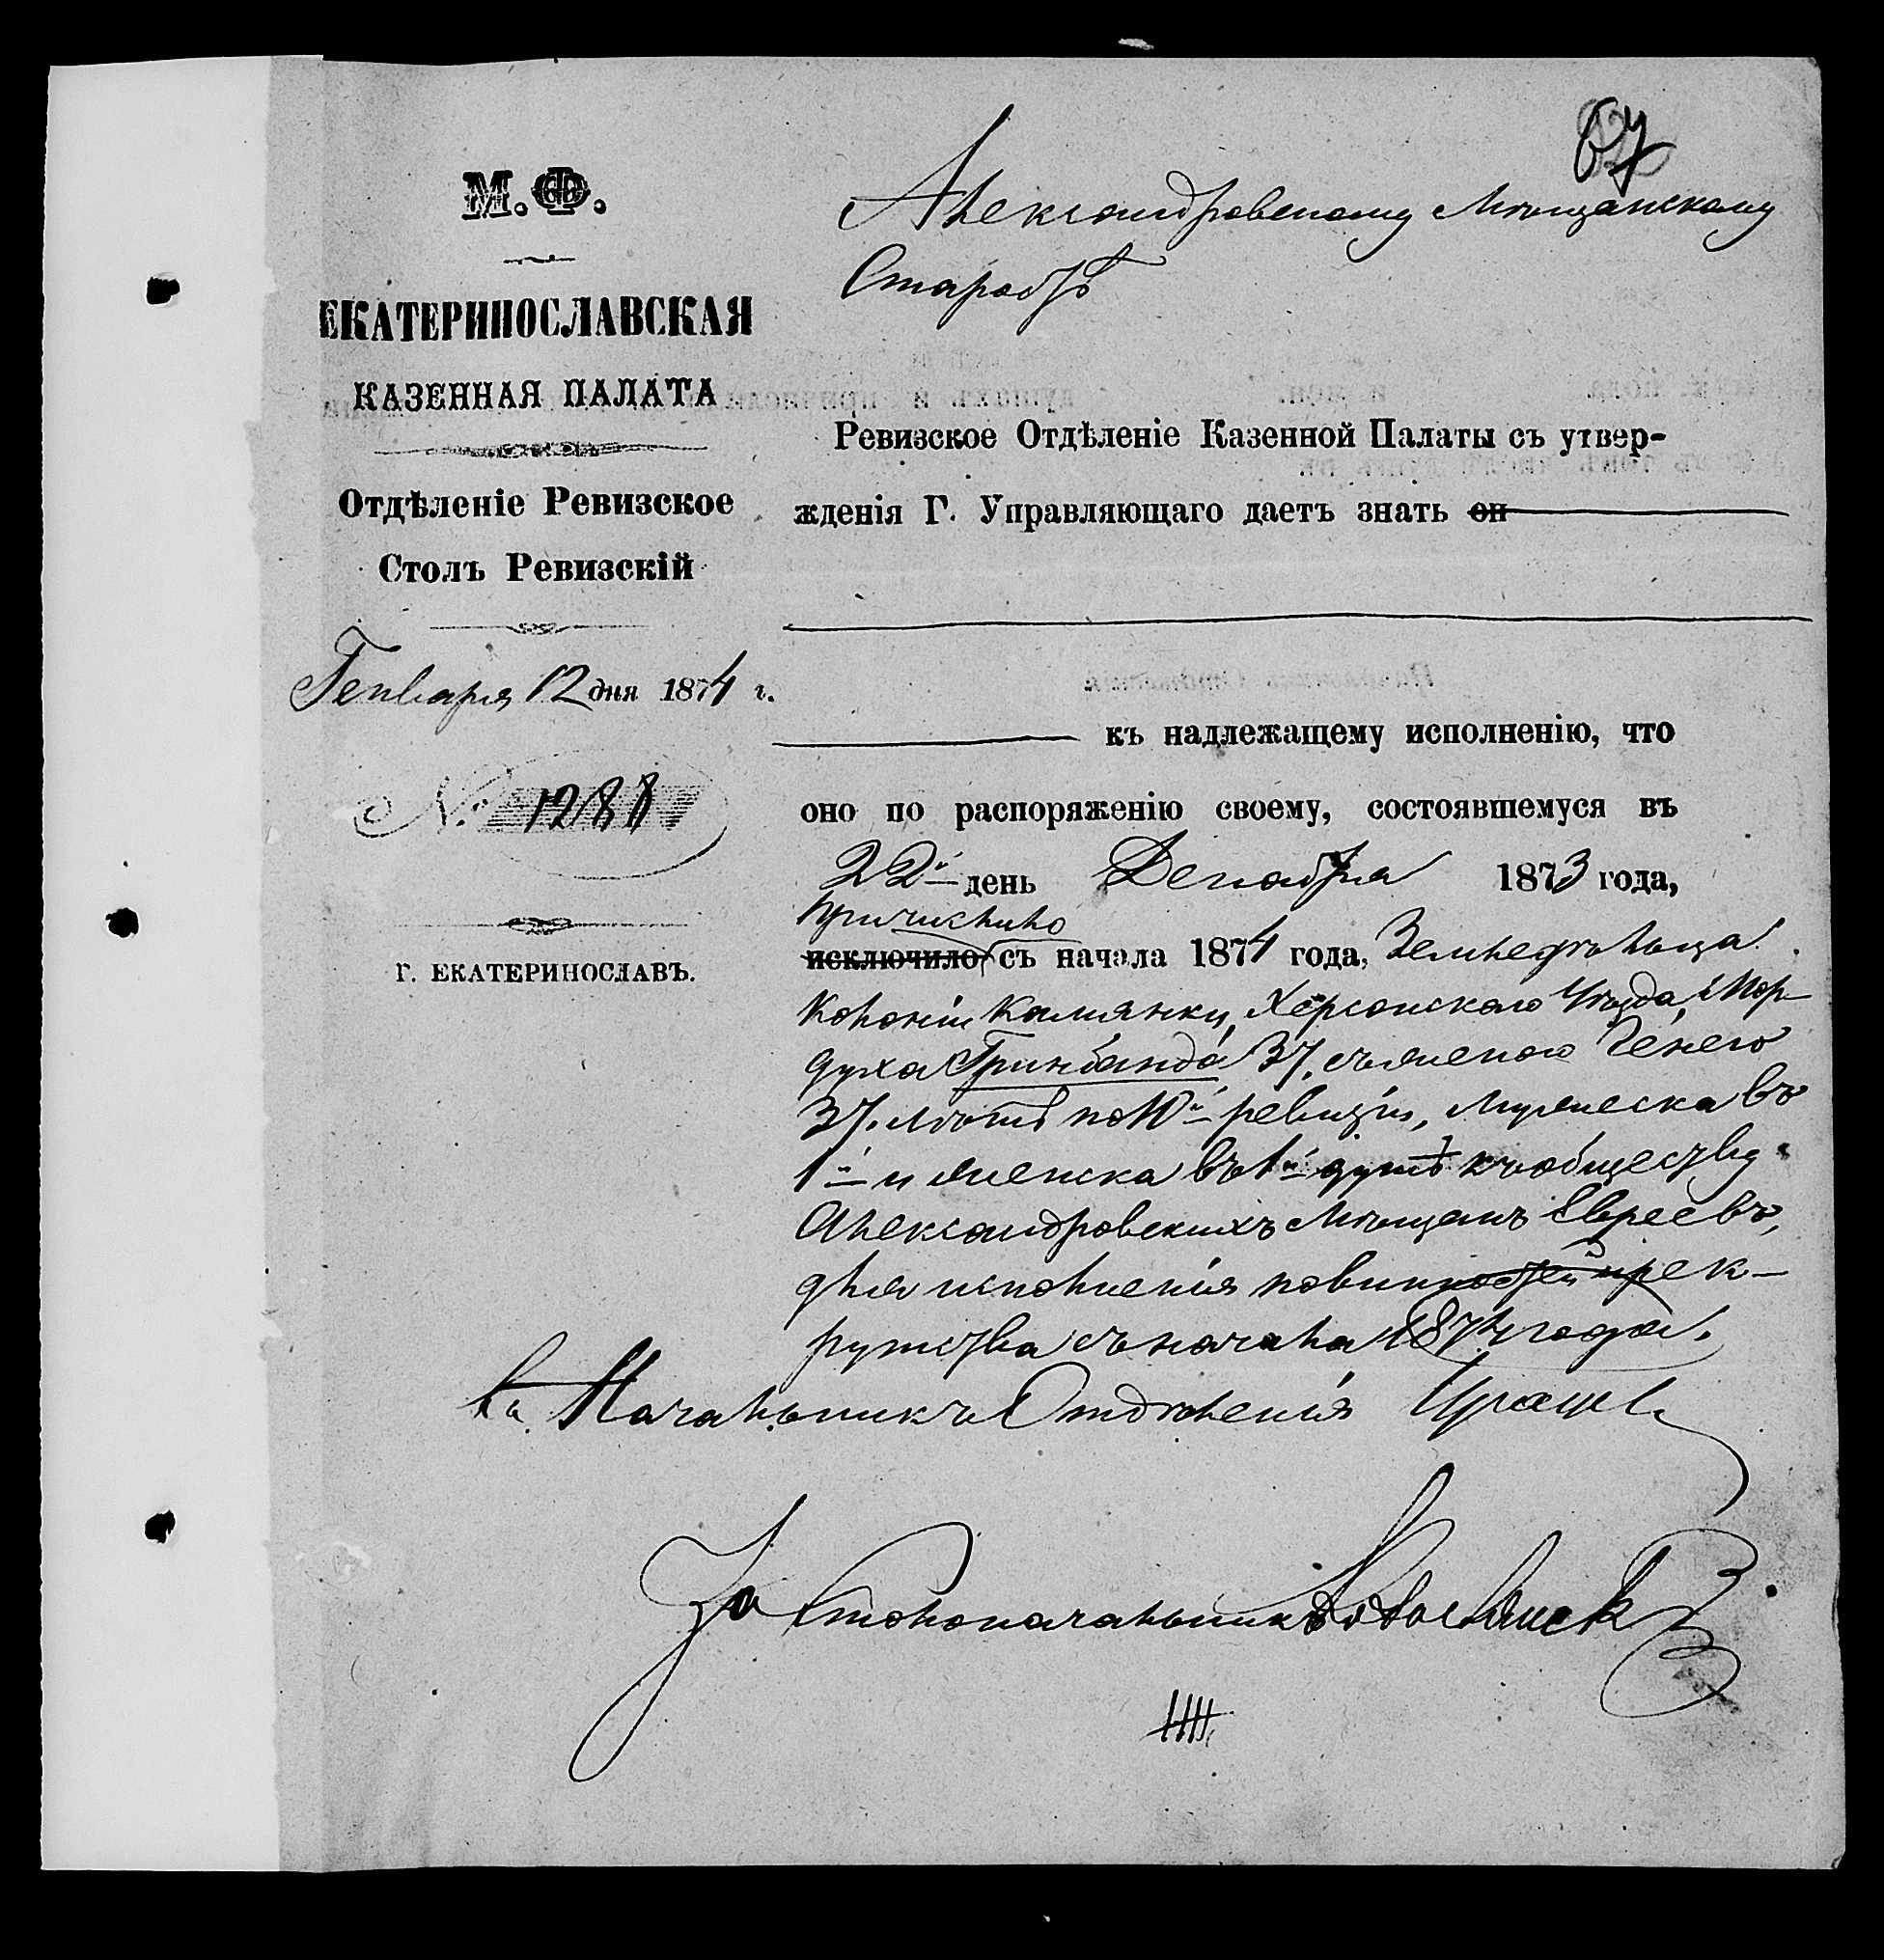 67
М.Ф.
ЕКАТЕРИНОСЛАВСКАЯ
КАЗЕННАЯ ПАЛАТА
Отдѣленіе Ревизское
Столъ Ревизскій
Генваря 12 дня 1874 г.
№ 1288
Г. ЕКАТЕРИНОСЛАВЪ.
Александровскому Мѣщанскому
Старостѣ
Ревизское Отдѣленіе Казенной Палаты съ утвер-
жденія Г. Управляющаго даетъ знать он
къ надлежащему исполненію, что
оно по распоряженію своему, состоявшемуся въ
22й день Декабря 1873 года,
причислило
исключило съ начала 1874 года, Земледѣльца
Колоніи Камянки, Херсонскаго Уѣзда, Мор-
духа Гринбанда 37, съ женою Генею
37 лѣтъ по 10й ревизіи, мужеска въ
1й и женска въ 1й душѣ къ обществу
Александровскихъ Мѣщанъ Евреевъ,
для исполненія повинностей рек-
рутства съ начала 1874 года.
Начальникъ Отдѣленія
За Столоначальника